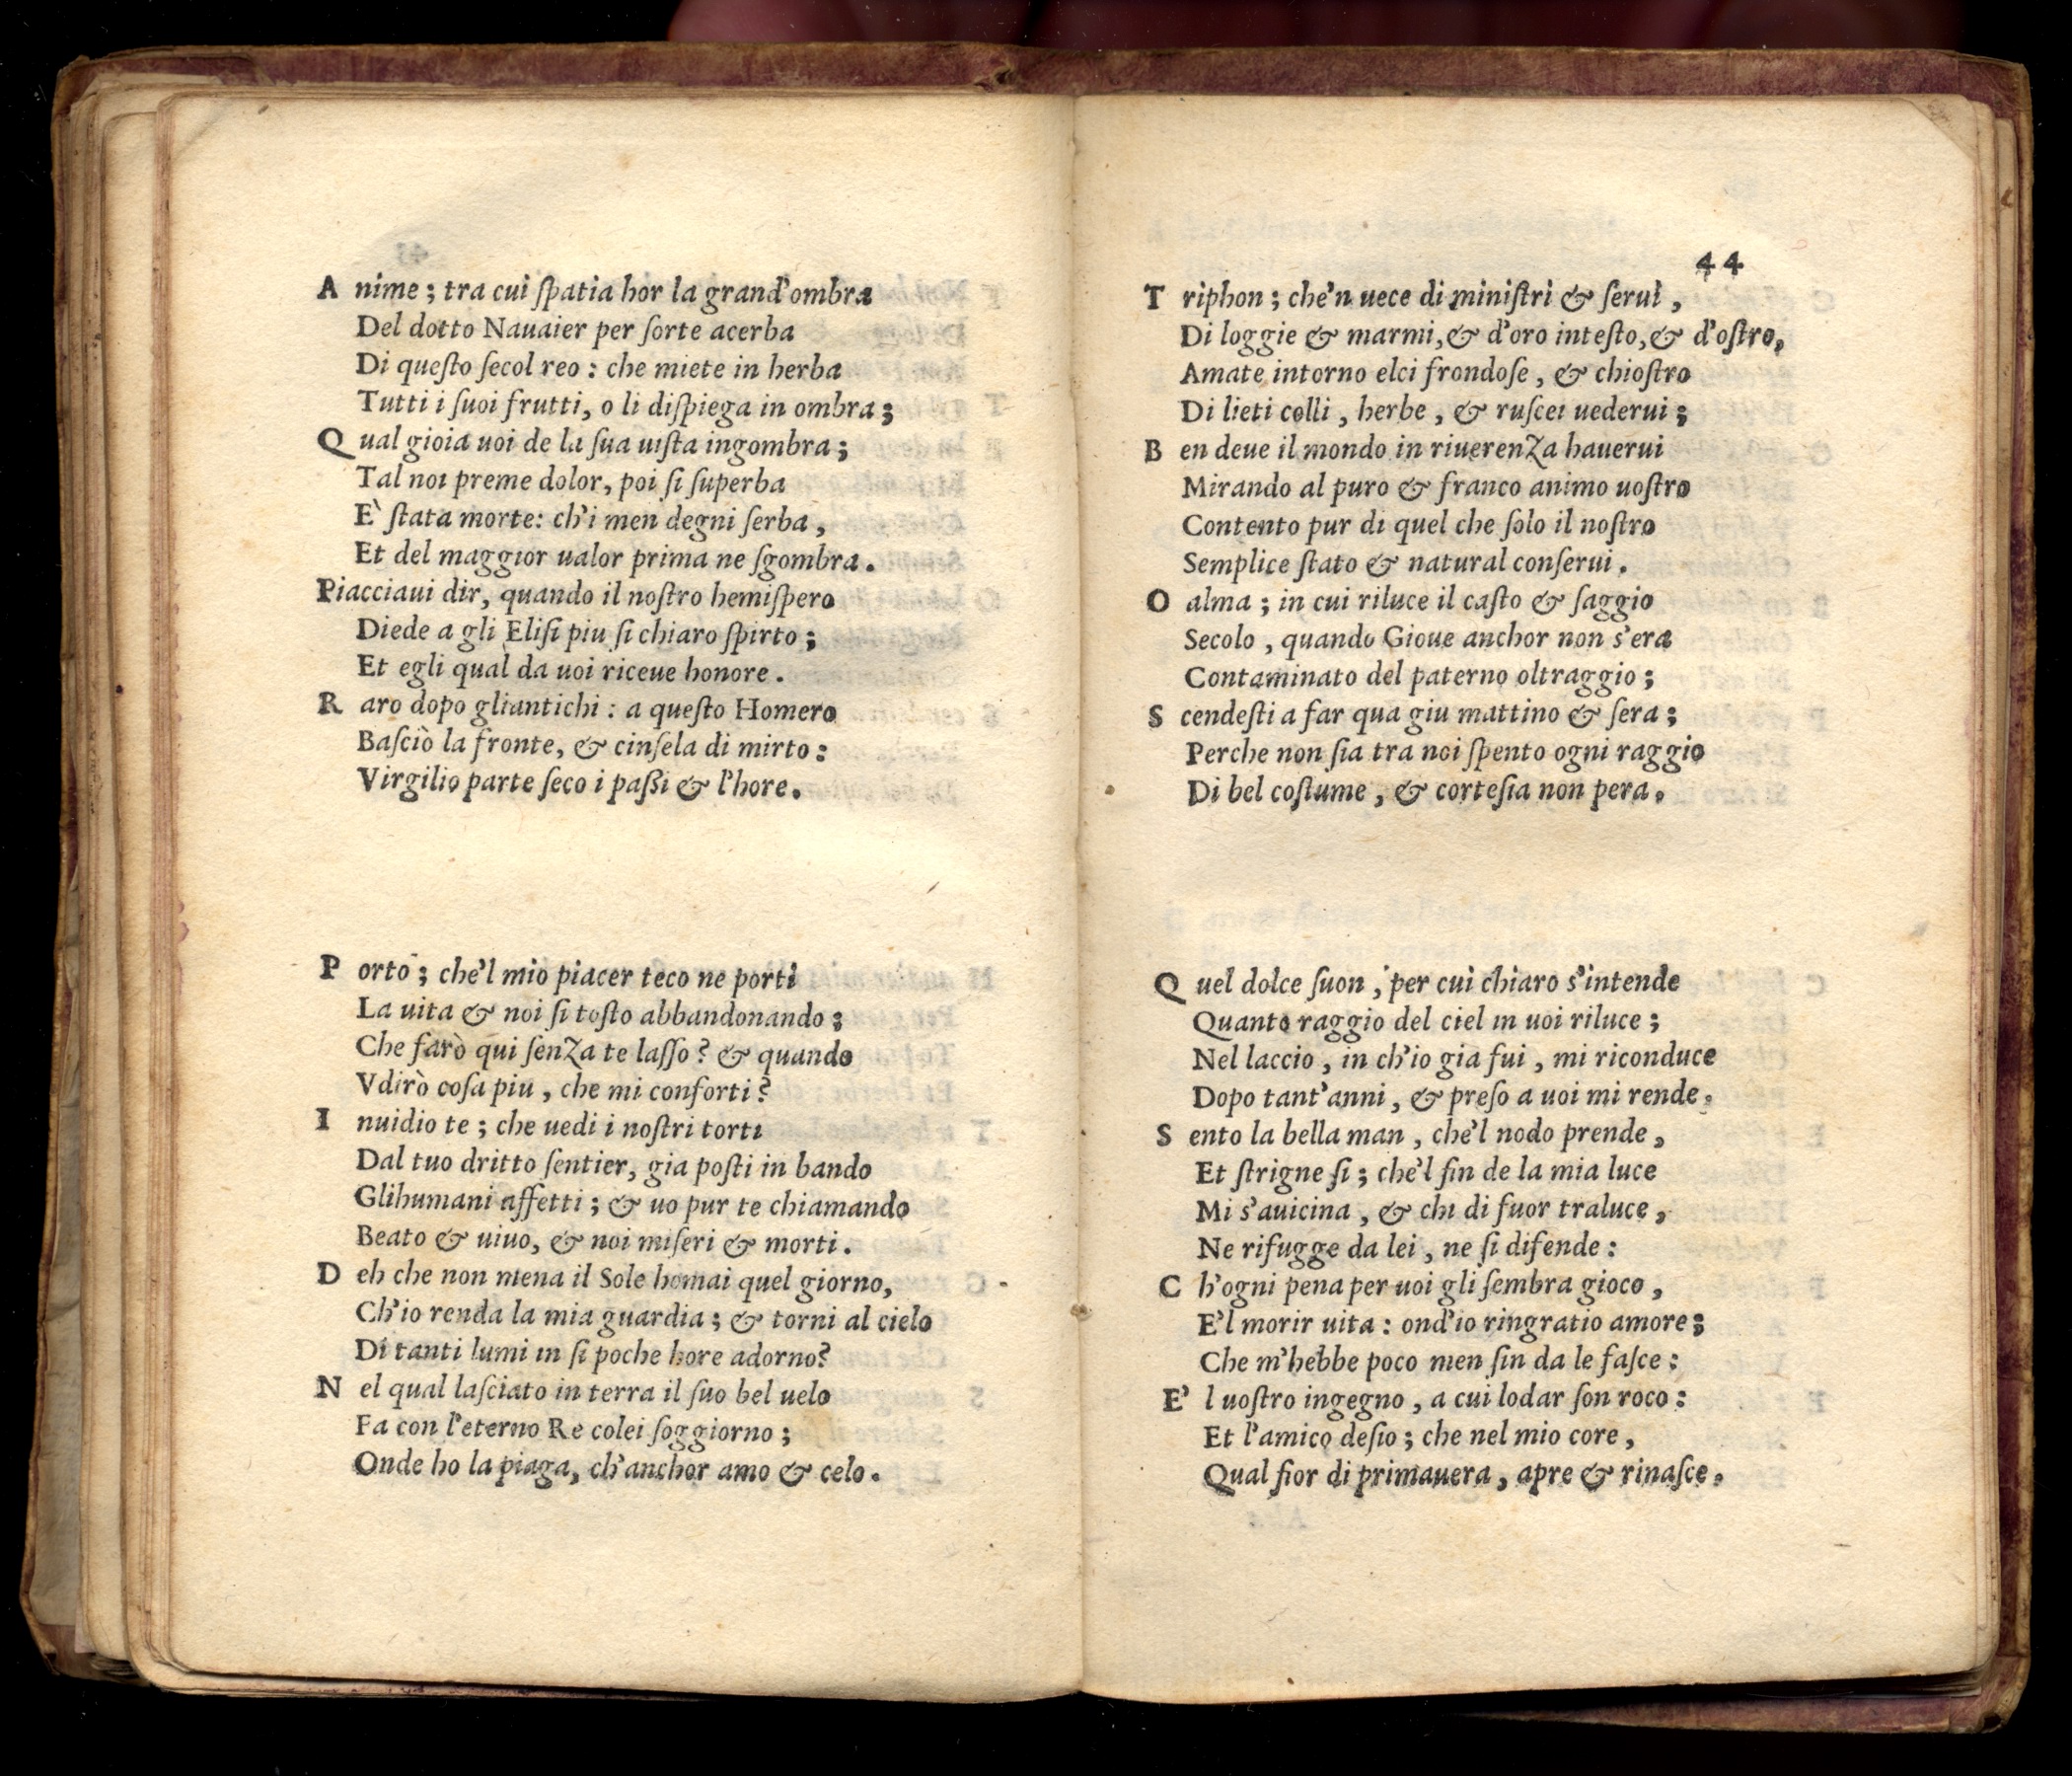 A nime; tra cui ſpatia hor la grand'ombra
Del dotto Nauaier per ſorte acerba
Di queſto ſecol reo: che miete in herba
Tutti i ſuoi frutti, o li diſpiega in ombra;
Q ual gioia uoi de la ſua uiſta ingombra;
Tal noi preme dolor, poi ſi ſuperba
E` ſtata morte: ch'i men degni ſerba,
Et del maggior ualor prima ne ſgombra.
Piacciaui dir, quando il noſtro hemiſpero
Diede a gli Eliſi piu ſi chiaro ſpirto;
Et egli qual da uoi riceue honore.
R aro dopo gliantichi: a queſto Homero
Baſciò la fronte, & cinſela di mirto:
Virgilio parte ſeco i paſſi & l'hore.
P orto; che'l mio piacer teco ne porti
La uita & noi ſi toſto abbandonando;
Che farò qui ſenza te laſſo? & quando
Vdirò coſa piu, che mi conforti?
I nuidio te; che uedi i noſtri torti
Dal tuo dritto ſentier, gia poſti in bando
Glihumani affetti; & uo pur te chiamando
Beato & uiuo, & noi miſeri & morti.
D eh che non mena il Sole homai quel giorno,
Ch'io renda la mia guardia; & torni al cielo
Di tanti lumi in ſi poche hore adorno?
N el qual laſciato in terra il ſuo bel uelo
Fa con l'eterno Re colei ſoggiorno;
Onde ho la piaga, ch'anchor amo & celo.
44
T riphon; che'n uece di miniſtri & ſerui,
Di loggie & marmi, & d'oro inteſto, & d'oſtro,
Amate intorno elci frondoſe, & chioſtro
Di lieti colli, herbe, & ruſcei uederui;
B en deue il mondo in riuerenza hauerui
Mirando al puro & franco animo uoſtro
Contento pur di quel che ſolo il noſtro
Semplice ſtato & natural conſerui.
O alma; in cui riluce il caſto & ſaggio
Secolo, quando Gioue anchor non s'era
Contaminato del paterno oltraggio;
S cendeſti a far qua giu mattino & ſera;
Perche non ſia tra noi ſpento ogni raggio
Di bel coſtume, & corteſia non pera.
Q uel dolce ſuon, per cui chiaro s'intende
Quanto raggio del ciel in uoi riluce;
Nel laccio, in ch'io gia fui, mi riconduce
Dopo tant'anni, & preſo a uoi mi rende.
S ento la bella man, che'l nodo prende,
Et ſtrigne ſi; che'l fin de la mia luce
Mi s'auicina, & chi di fuor traluce,
Ne rifugge da lei, ne ſi difende:
C h'ogni pena per uoi gli ſembra gioco,
E'l morir uita: ond'io ringratio amore;
Che m'hebbe poco men ſin da le faſce:
E' l uoſtro ingegno, a cui lodar ſon roco:
Et l'amico deſio; che nel mio core,
Qual fior di primauera, apre & rinaſce.